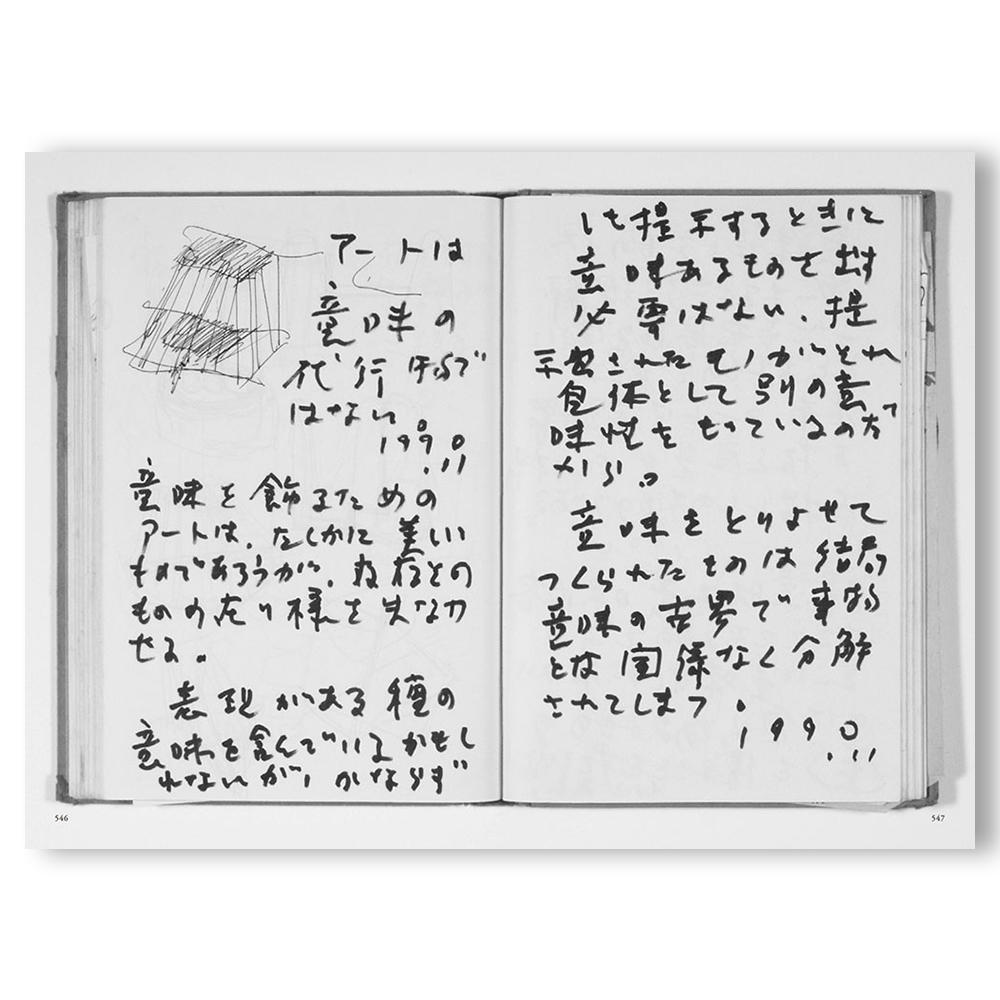 アートは
意味の
代行形で
はない
1990
.11
意味を飾るための
アートは、たしかに美しい
ものであろうが、存在との
ものの在り様を失なわ
せる。
表現がある種の
意味を含んでいるかもし
れないが、かならず
しも提示するときに
意味あるものを出す
必要はない、提
示されたモノがそれ
自体として別の意
味性をもっているのだ
から。
意味をとりよせて
つくられたものは結局
意味の世界で事物
とは関係なく分解
されてしまう。
1990
.11
546
547